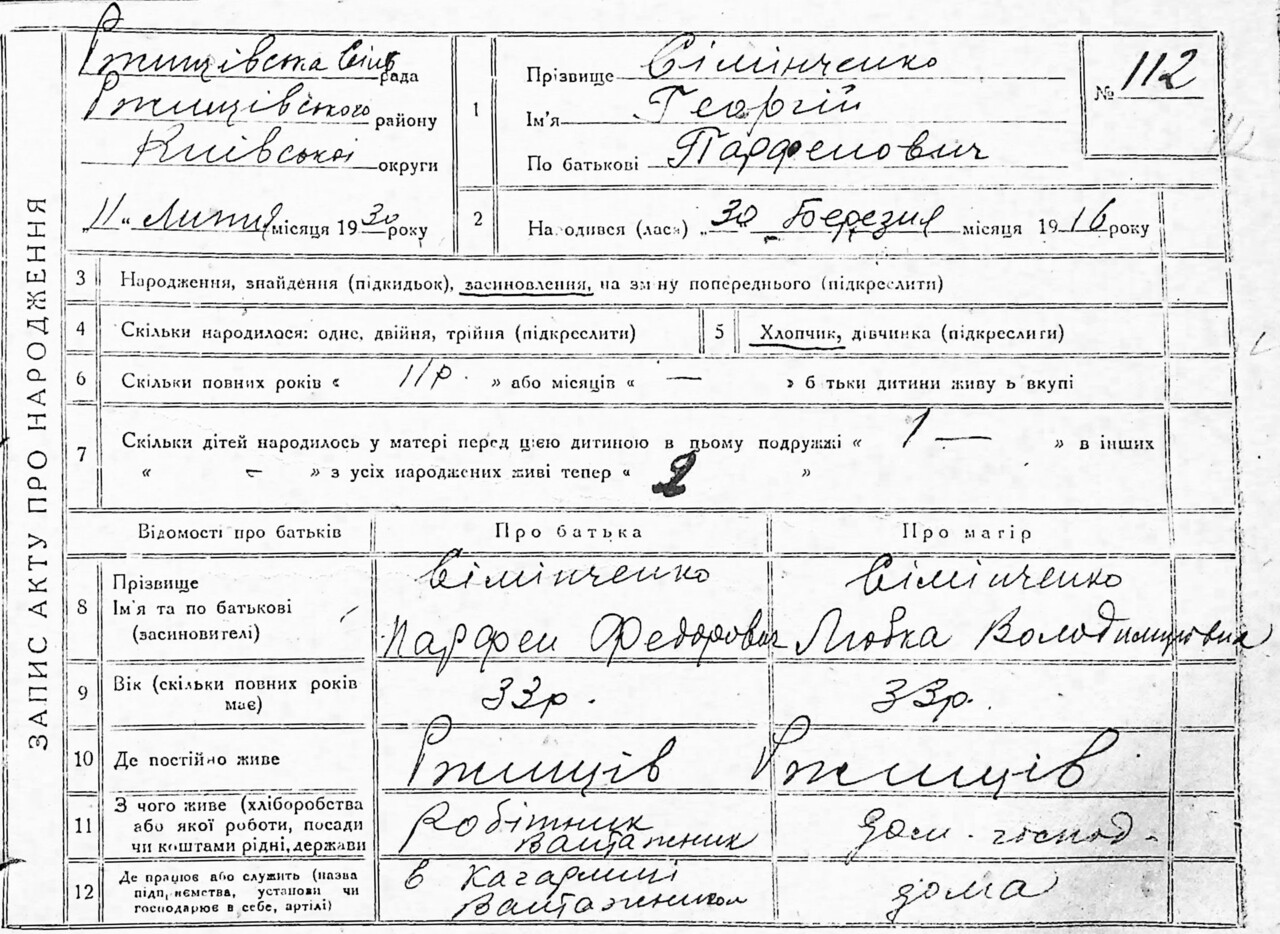 ЗАПИС АКТУ ПРО НАРОДЖЕННЯ
Ржищівська Сіль рада
Ржищівського району
Київської округи
„11“ Липня місяця 1930 року
1
Прізвище Сімінченко
Ім'я Георгій
По батькові Парфенович
№ 112
2
Народився (лася) „30“ Березня місяця 1916 року
3 Народження, знайдення (підкидьок), засиновлення, на зміну попереднього (підкреслити)
4 Скільки народилося: одне, двійня, трійня (підкреслити)
5 Хлопчик, дівчинка (підкреслити)
6 Скільки повних років « 11р. » або місяців « — » батьки дитини живуть вкупі
7 Скільки дітей народилось у матері перед цією дитиною в цьому подружжі « 1 — » в інших
« – » з усіх народжених живі тепер « 2 »
Відомості про батьків Про батька Про матір
8 Прізвище
Ім'я та по батькові
(засиновителі)
Сімінченко
Парфен Федорович
Сімінченко
Любка Володимирівна
9 Вік (скільки повних років
має)
33р. 33р.
10 Де постійно живе Ржищів Ржищів
11 З чого живе (хліборобства
або якої роботи, посади
чи коштами рідні, держави
Робітник
Вантажник
Дом. господ.
12 Де працює або служить (назва
підприємства, установи чи
господарює в себе, артілі)
в Кагарлиці
Вантажником
дома